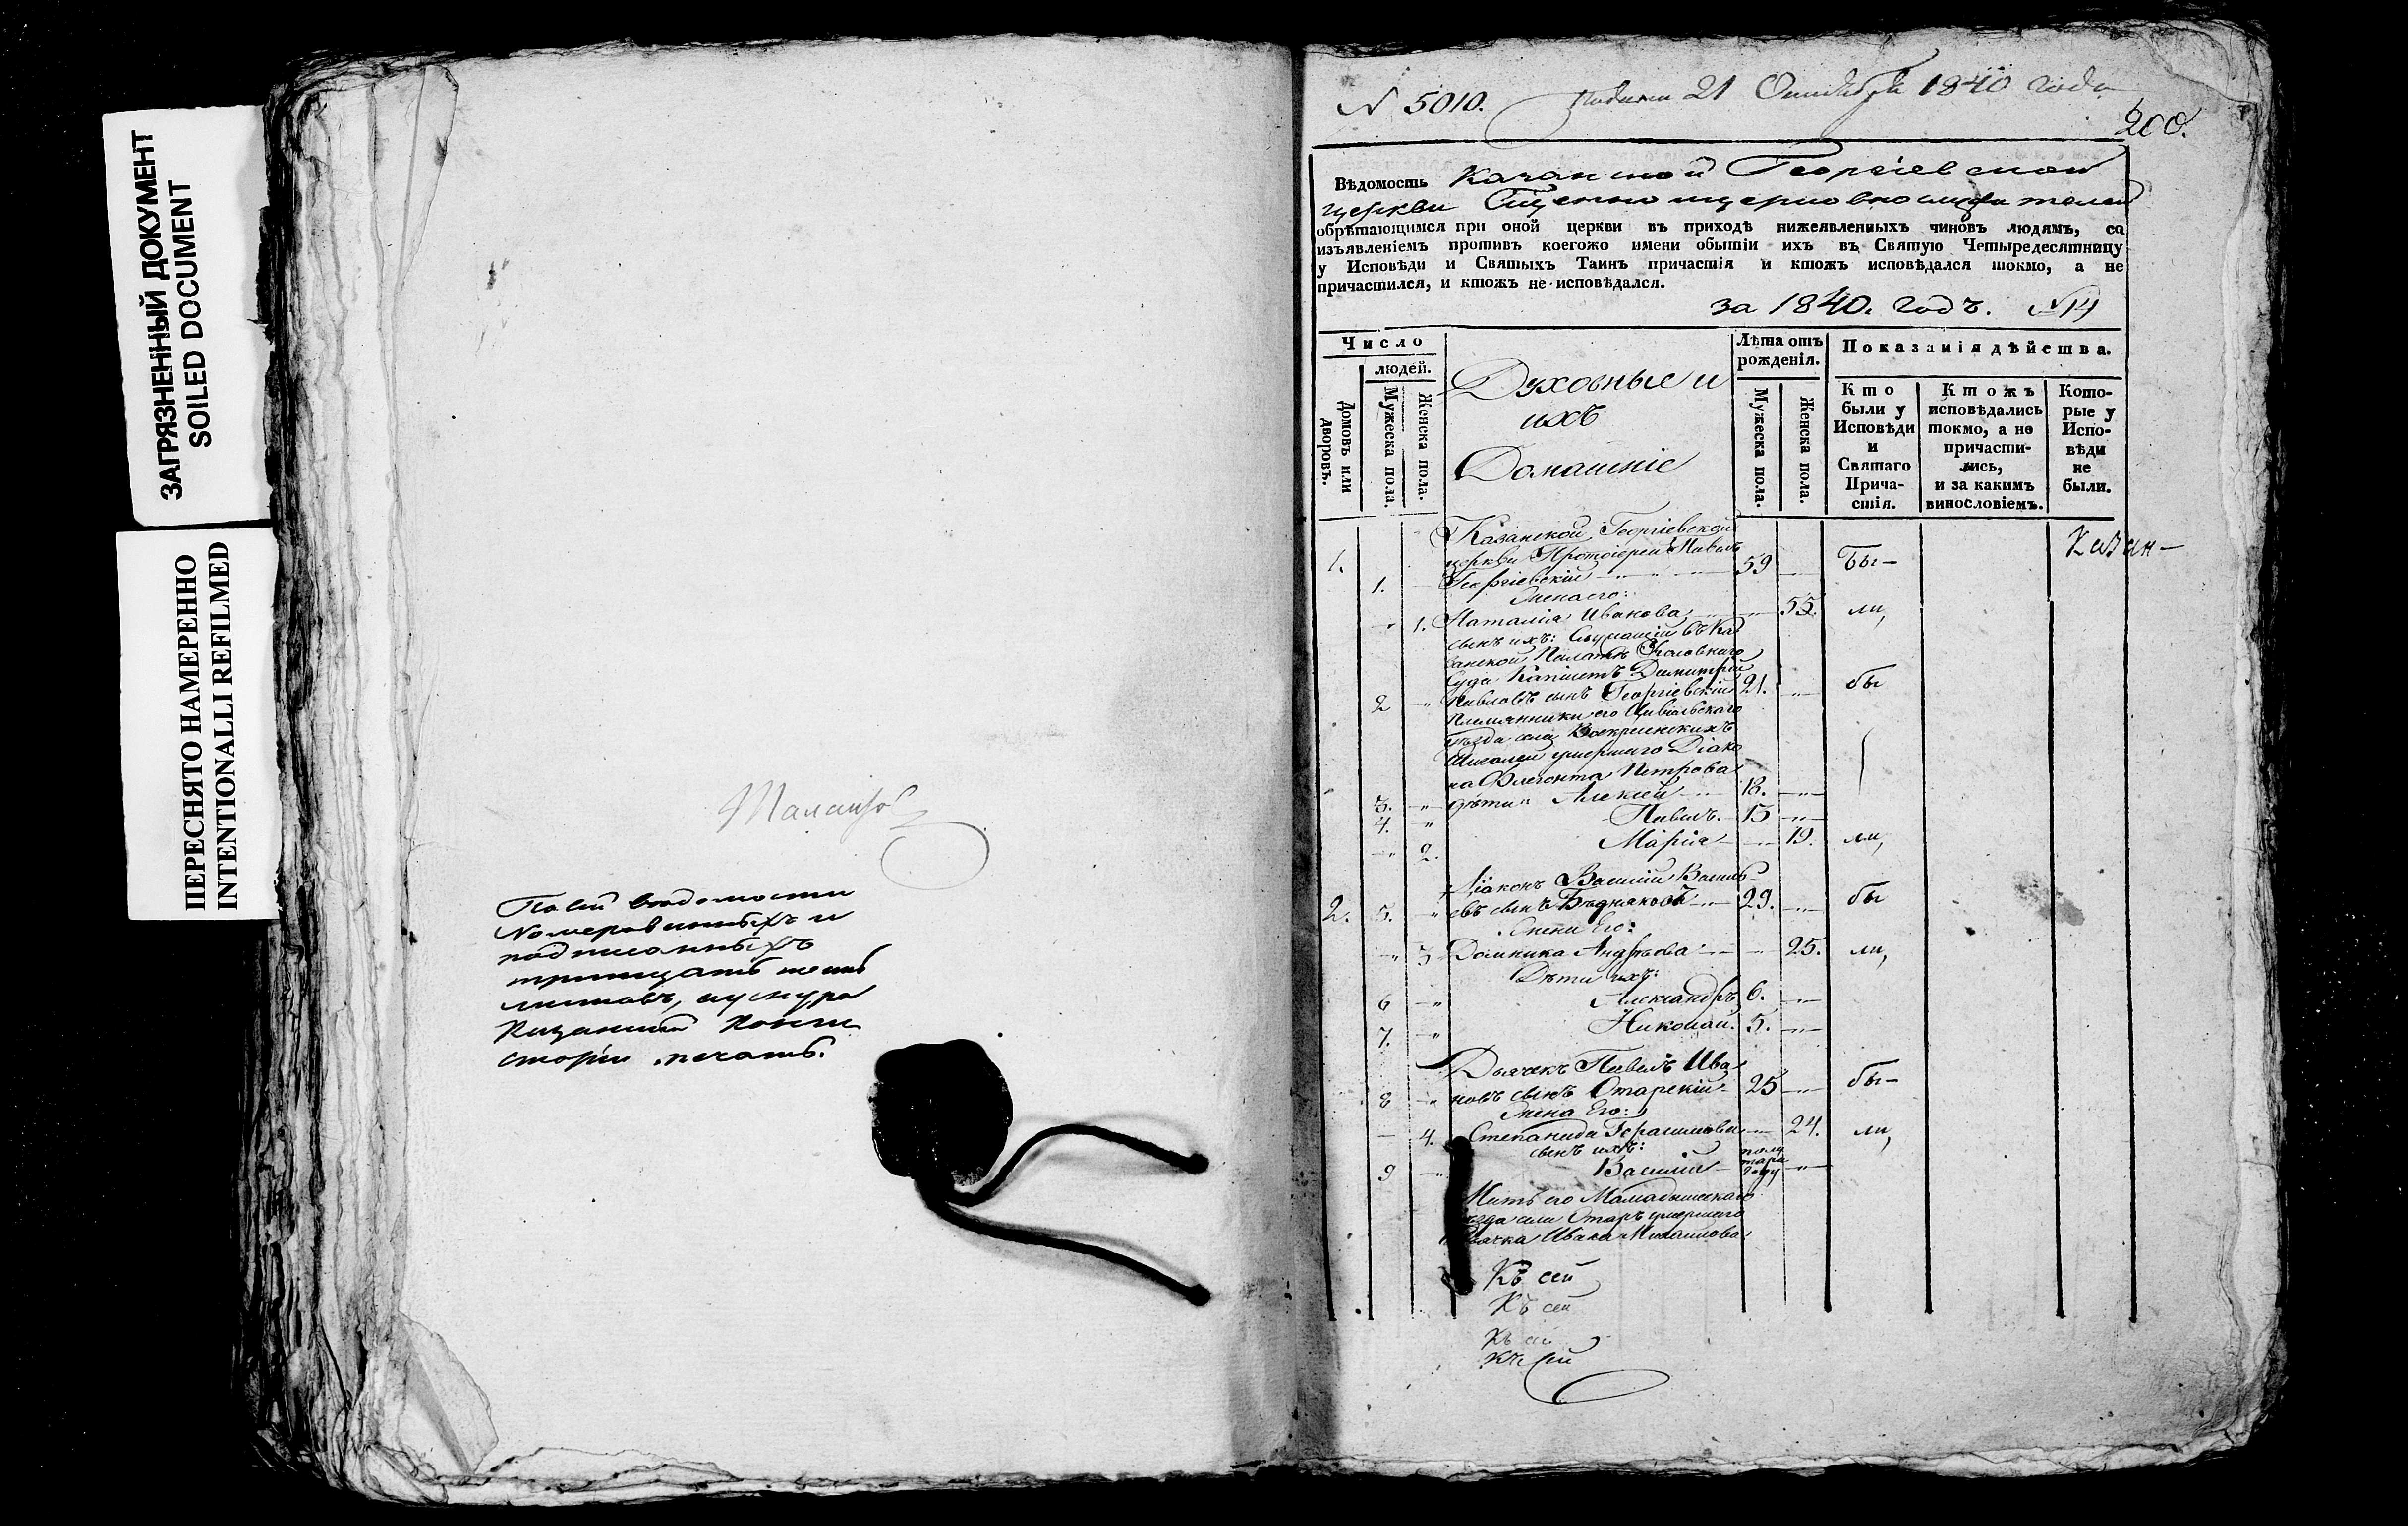 ЗАГРЯЗНЕННЫЙ ДОКУМЕНТ
SOILED DOCUMENT
ПЕРЕСНЯТО НАМЕРЕННО
INTENTIONALLI REFILMED
По сей ведомости
номерованныхъ и
подписанныхъ
тритцать
листовъ, аушнура
Казанской Конси
сторіи печать.
N 5010. 21 Октября 1840 года
200.
Вѣдомость Казанской Георгіевской
церкви
обрѣтающимся при оной церкви въ приходѣ нижеявленныхъ чиновъ людямъ, со
изъявленіемъ противъ коегожо имени обытіи ихъ въ Святую Четыредесятницу
у Исповѣди и Святыхъ Таинъ причастія и ктожъ исповѣдался токмо, а не
причастился, и ктожъ не исповѣдался.
за 1840. годъ. N 14
Число
людей.
Домовъ или дворовъ.
Мужеска пола.
Женска пола.
Духовные и
ихъ
Домашніе
Лѣта отъ
рожденія.
Мужеска пола.
Женска пола.
Показанія дѣйства.
Кто
были у
Исповѣди
и
Святаго
Прича-
стія.
Ктожъ
исповѣдались
токмо, а не
причасти-
лись,
и за какимъ
винословіемъ.
Кото-
рые у
Испо-
вѣди
не
были.
Казанской Георгіевской
1. церкви Протоіерей Павелъ
1. Георгіевскій 59 Бы- Казан-
Жена его:
1. Наталія Иванова 55. ли,
сынъ ихъ: Служащій въ Ка
занской Палатѣ Уголовнаго
Суда Капіистъ Димитрій
2 Павловъ сынъ Георгіевскій 21. бы
Племянники его Цивильскаго
уѣзда села Воскресенскихъ
умершаго Діако
на Флегонта Петрова
3. дѣти Алексѣй 18.
4. Павелъ. 15
2. Марія 19. ли,
Діаконъ Василій Василь
2. 5. евъ сынъ Бѣдняковъ 29. бы
Жена Его:
3 Домника Андрѣева 25. ли,
Дѣти ихъ:
6 Александръ 6.
7. Николай. 5.
Дьячекъ Павелъ Ива
8 новъ сынъ Отарскій 25 бы-
Жена Его:
4. Степанида Герасимова 24. ли,
сынъ ихъ:
9 Василій полу
тара
году
Мать его Мамадышскаго
уѣзда села Отаръ умершаго
Дьячка Ивана Михайлова
Къ сей
Къ сей
Къ сей
Къ сей